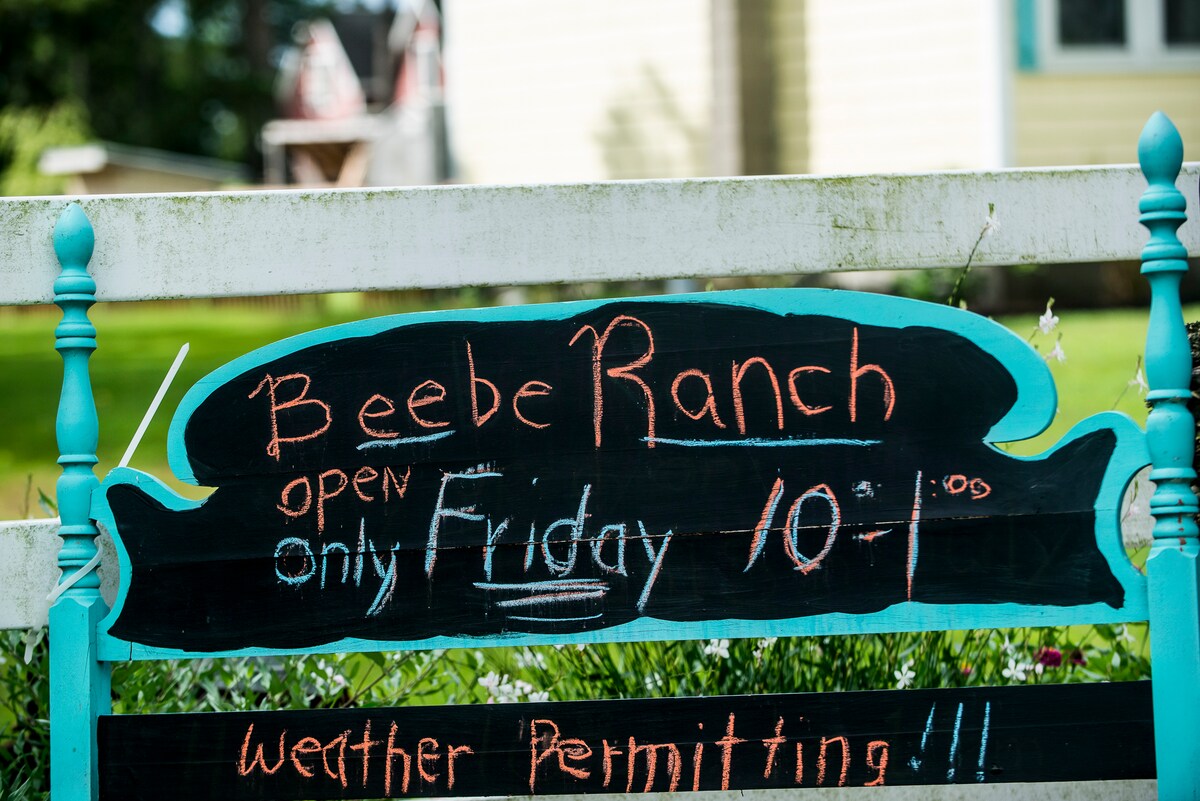 Beebe Ranch
open
only Friday 10-1:00
weather Permitting!!!